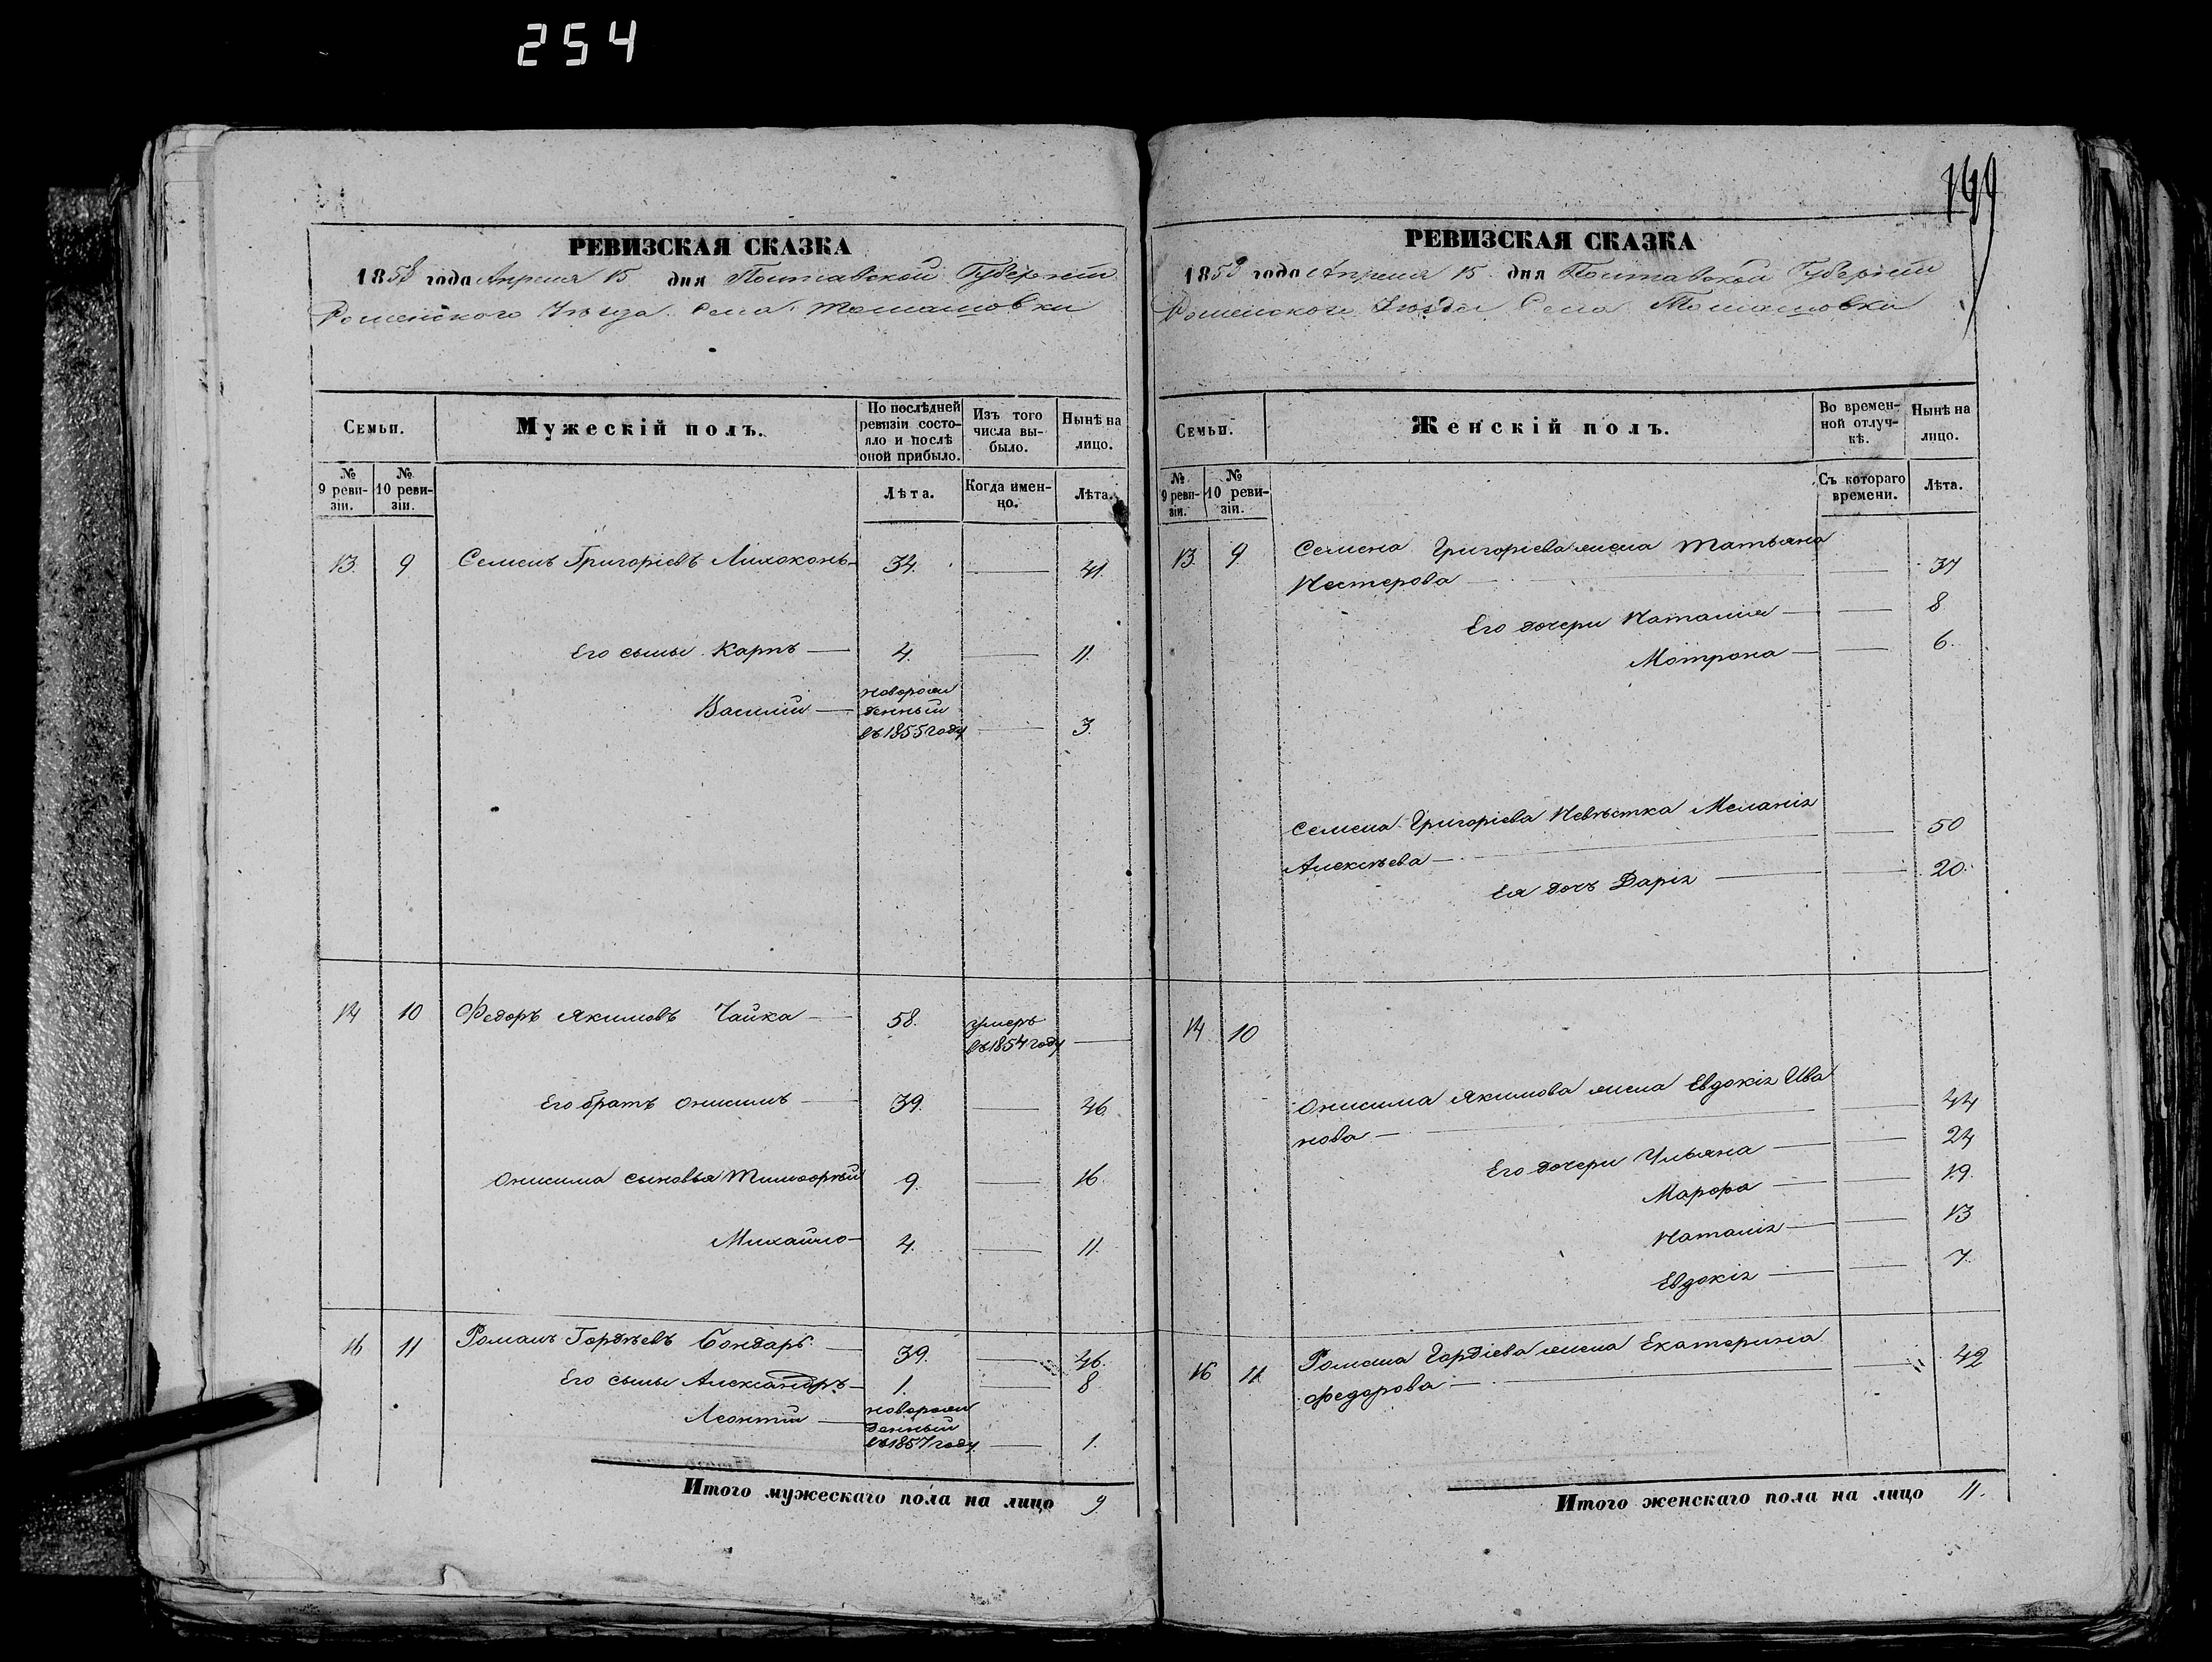 254
РЕВИЗСКАЯ СКАЗКА
1858 года Апреля 15 дня Полтавской Губерніи
Роменского Уѣзда Села Томашовки
Семьи.
Мужескій полъ.
По послѣдней ревизіи состояло и послѣ оной прибыло.
Изъ того числа выбыло.
Нынѣ на лицо.
№ 9 ревизіи.
№ 10 ревизіи.
Лѣта.
Когда именно.
Лѣта.
13. 9 Семенъ Григоріевъ Лихоконь 34. 41.
Его сыны Карпъ 4. 11.
Василій новорожденный въ 1855 году 3.
14 10 Федоръ Якимовъ Чайка 58. умеръ въ 1854 году
Его братъ Онисимъ 39. 46.
Онисима сыновья Тимофѣй 9. 16.
Михайло 4. 11.
16 11 Романъ Гордѣевъ Бондарь 39. 46.
Его сыны Александръ 1. 8
Леонтій новорожденный въ 1857 году 1.
Итого мужескаго пола на лицо 9.
149
РЕВИЗСКАЯ СКАЗКА
1858 года Апреля 15 дня Полтавской Губерніи
Роменского Уѣзда Села Томашовки
Семьи.
Женскій полъ.
Во временной отлучкѣ.
Нынѣ на лицо.
№ 9 ревизіи.
№ 10 ревизіи.
Съ котораго времени.
Лѣта.
13. 9. Семена Григоріева жена Татьяна
Нестерова 37
Его дочери Наталия 8
Мотрона 6.
Семена Григоріева Невѣстка Меланія 50
Алексѣева
Ея дочь Дарія 20.
14 10
Онисима Якимова жена Евдокія Ива
нова 44
Его дочери Ульяна 24
Марфа 19.
Наталія 13
Евдокія 7.
16 11 Романа Гордіева жена Екатерина 42
Федорова
Итого женскаго пола на лицо 11.